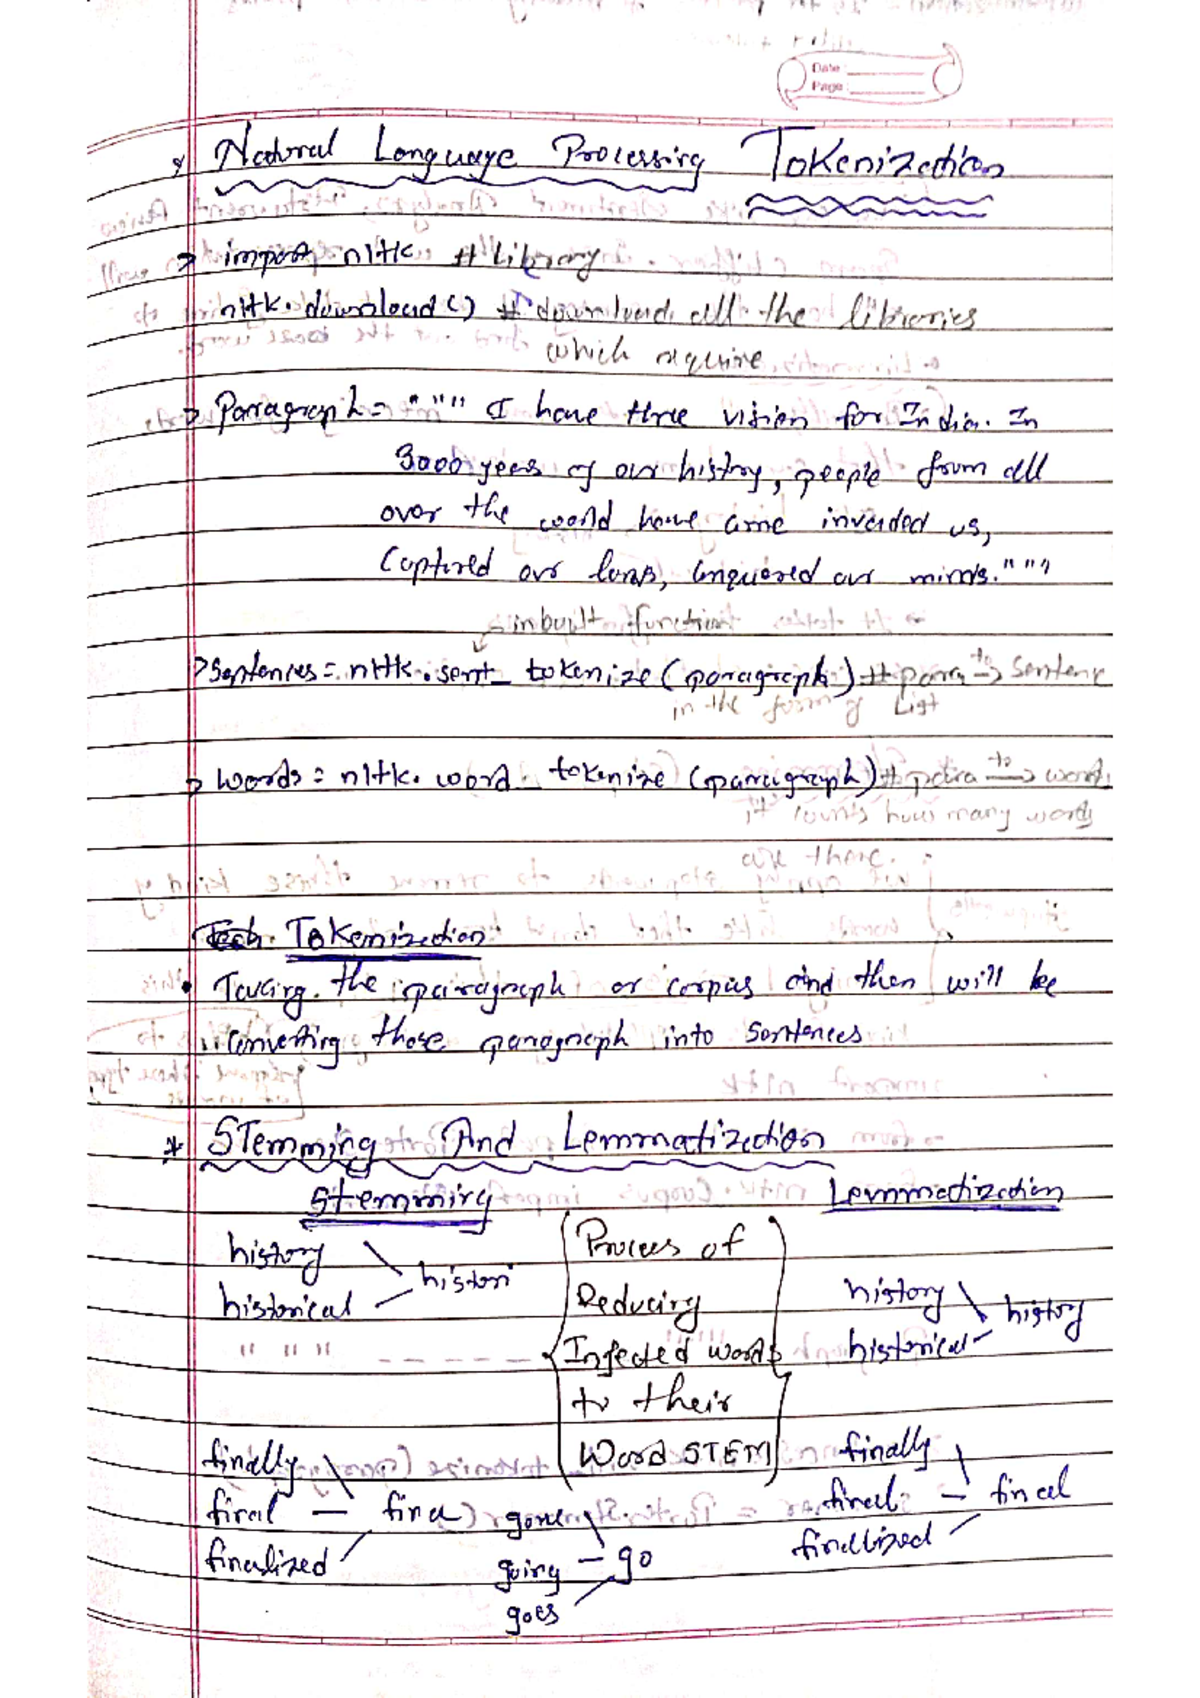 Date
Page
Natural Language Processing Tokenization
> import nltk # Library
nltk.download() # download all the libraries
which require
> Paragraph = """ I have three vision for India. In
3000 years of our history, people from all
over the world have come invaded us,
Captured our lands, conquered our minds."""
inbuilt function
> Sentences = nltk.sent_tokenize (paragraph) # para to → Sentence
in the form of List
> words = nltk.word_tokenize (paragraph) # para to → words
it counts how many words
are there.
Tokenization
• Taking the paragraph or corpus and then will be
converting those paragraph into Sentences
* STemming And Lemmatization
Stemming Lemmatization
history
historical
histori
" " " "
{ Process of
Reducing
Infected words
to their
Word STEM }
history
historical
history
finally
final — fina
finalized
gone
going — go
goes
finally
final — final
finallized